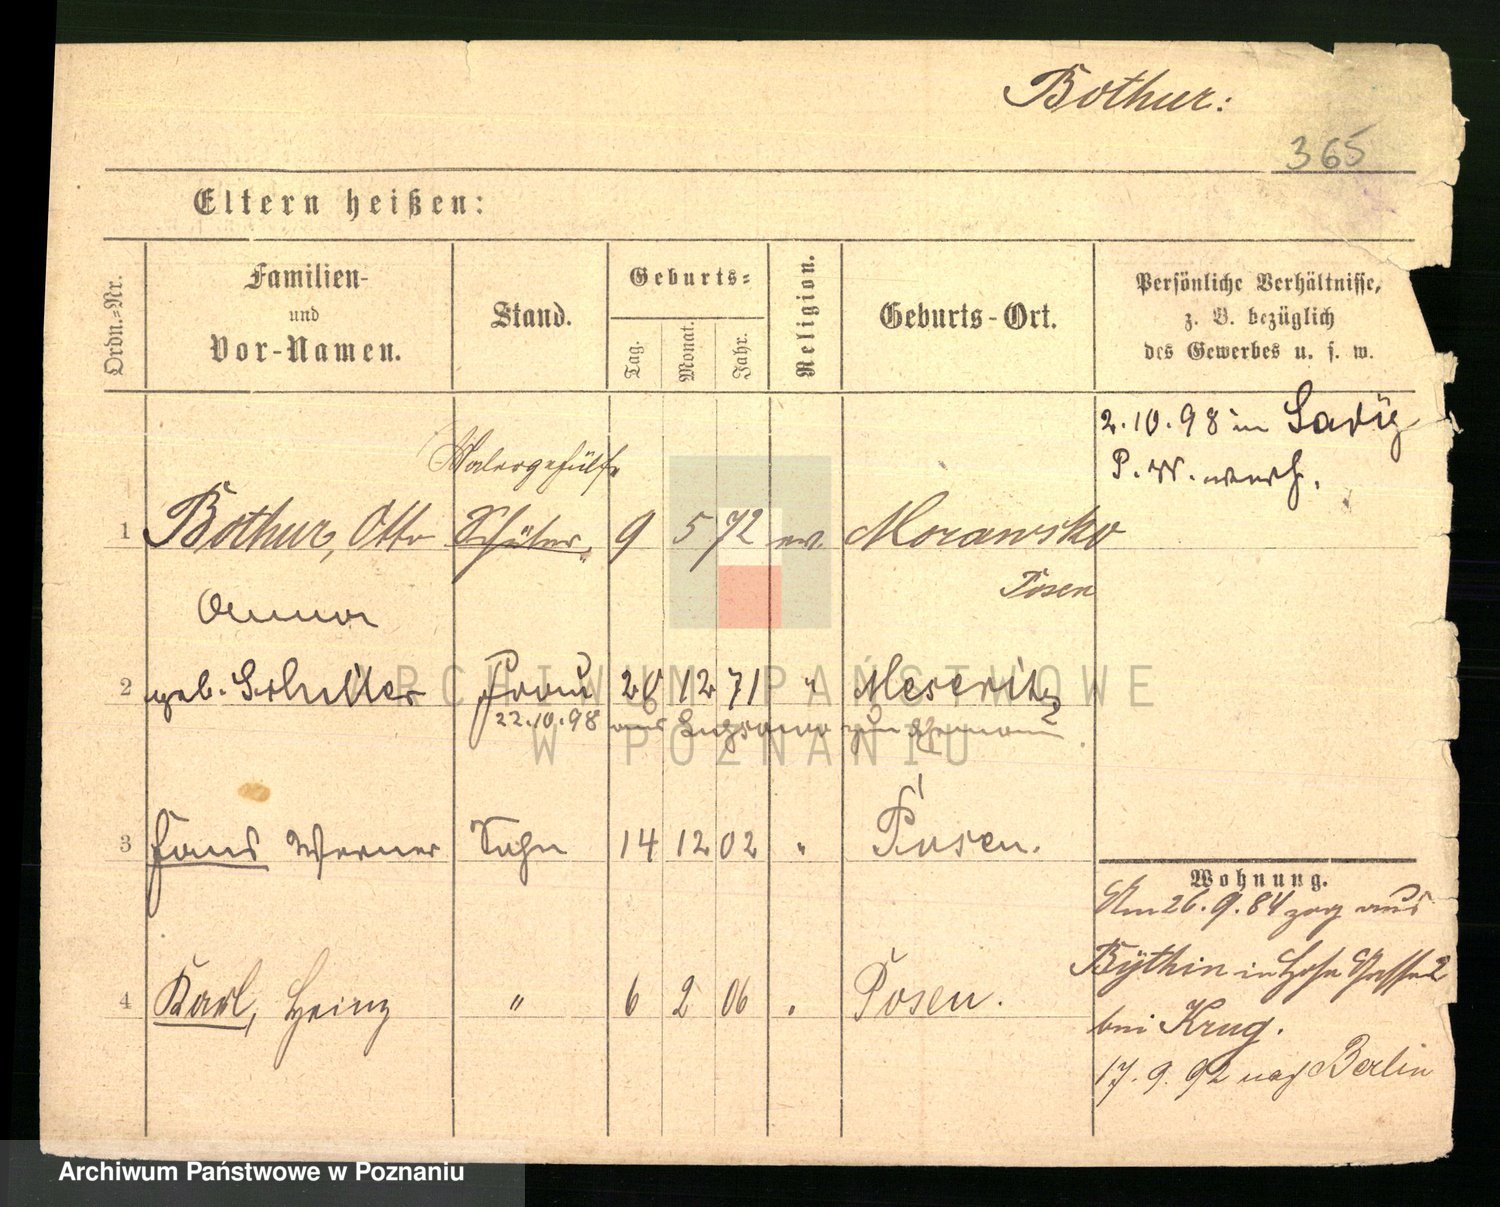 Bothur:
365
Eltern heißen:
Ordn.-Nr.
Familien-
und
Vor-Namen.
Stand.
Geburts-
Tag.
Monat.
Jahr.
Religion.
Geburts-Ort.
Persönliche Verhältnisse,
z. B. bezüglich
des Gewerbes u. s. w.
2.10.98 in
Malergehülfe
1 Bothur, Otto Schüler 9 5 72 ev. Morawsko
Posen
Anna
2 geb. Schiller Frau 20 12 71 " Meseritz
22.10.98 aus zum Ehemann
3 Hans Werner Sohn 14 12 02 " Posen.
4 Karl, Heinz " 6 2 06 " Posen.
Wohnung.
Am 26.9.84 zog aus
Bythin in Hohe Gasse 2
bei Krug.
17.9.92 nach Berlin
ARCHIWUM PAŃSTWOWE
W POZNANIU
Archiwum Państwowe w Poznaniu